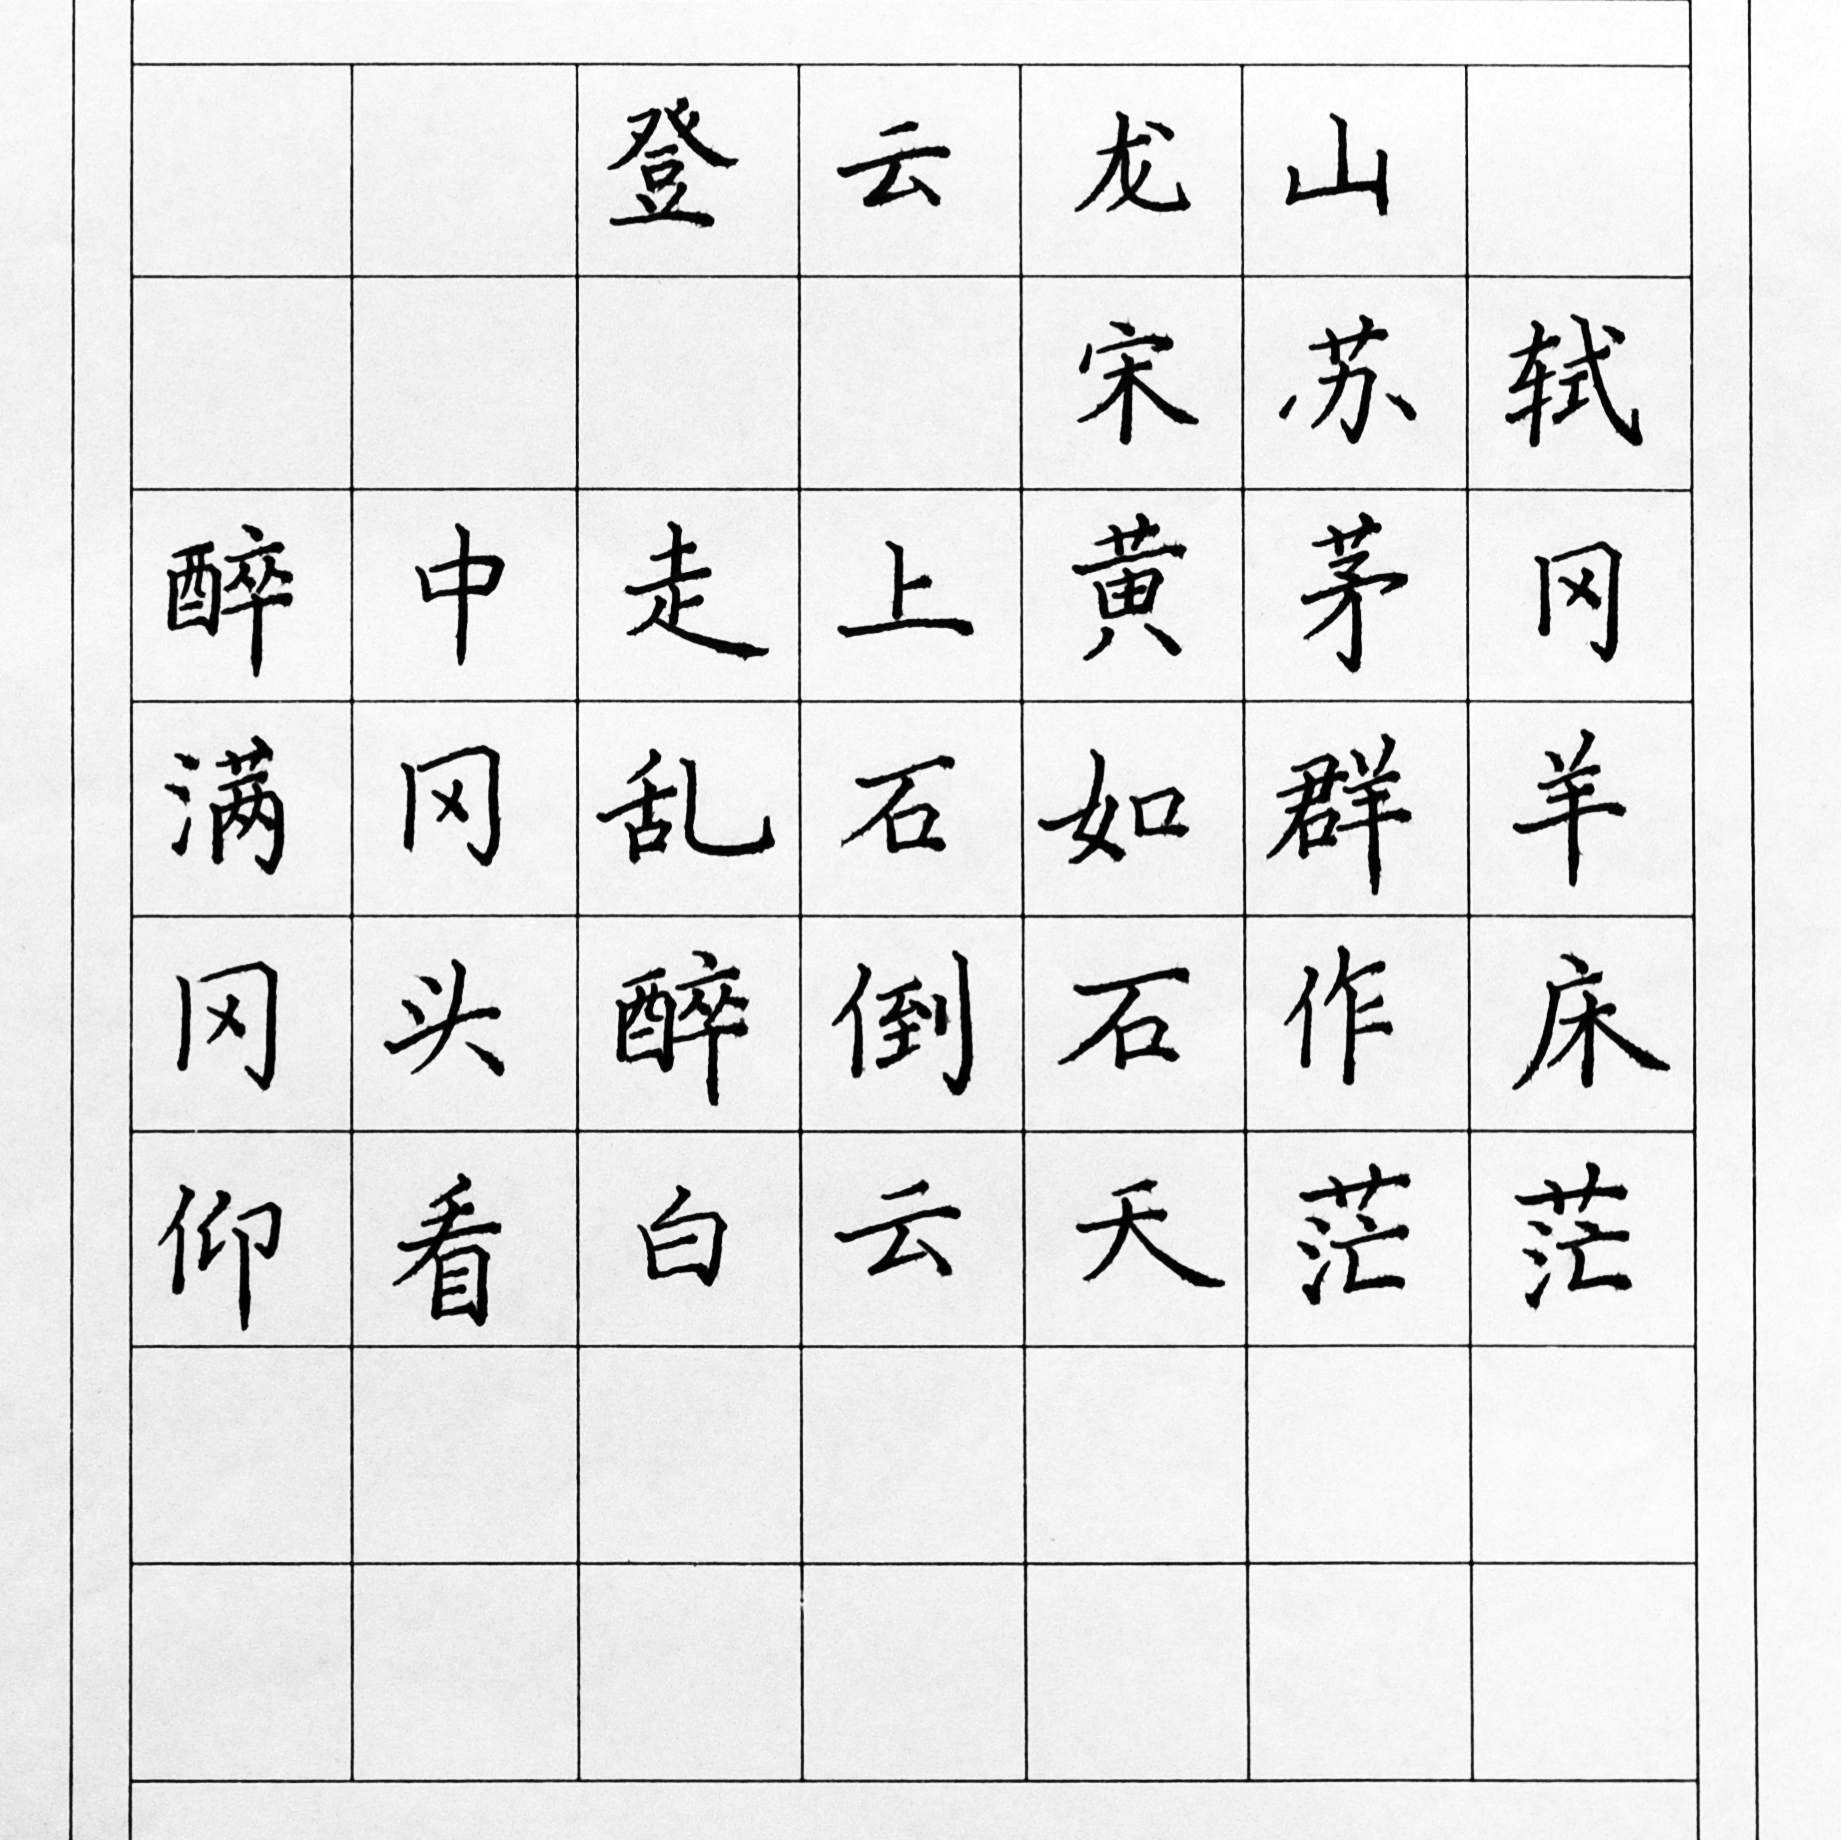 登云龙山
宋苏轼
醉中走上黄茅冈
满冈乱石如群羊
冈头醉倒石作床
仰看白云天茫茫